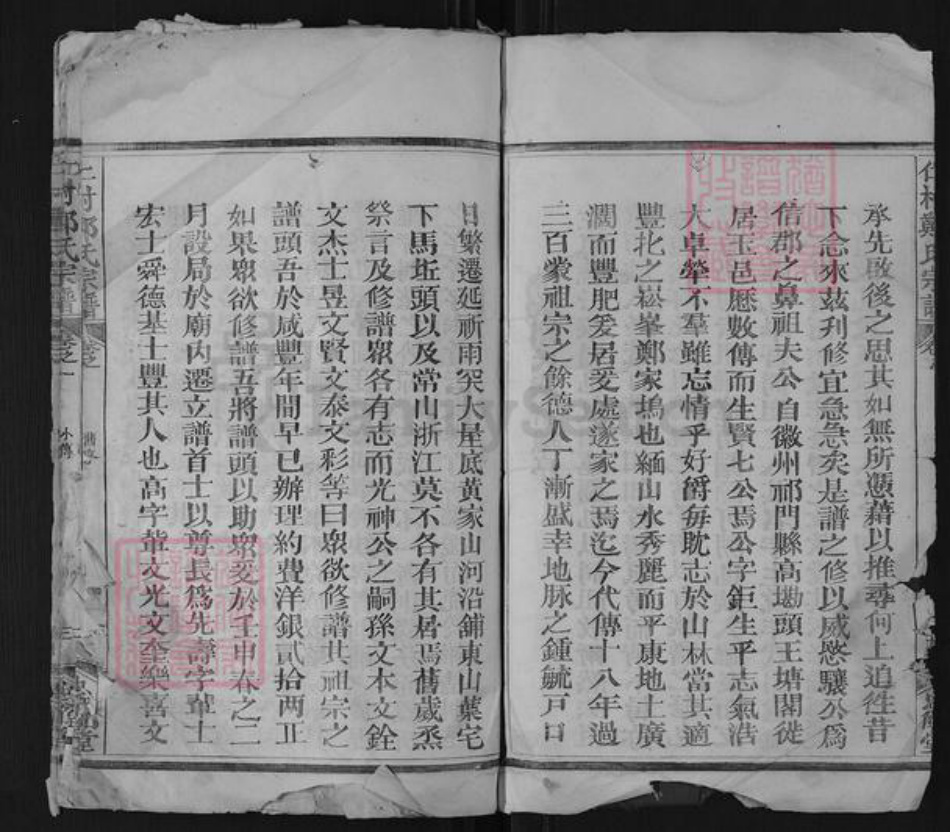 承先啟後之思其如無所憑藉以推尋何上追徃昔
下念來茲刋修宜急急矣是譜之修以威愍驤公為
信郡之鼻祖夫公自徽州祁門縣高塘頭王塘閣徙
居玉邑歷數傳而生賢七公焉公字鉅生平志氣浩
大卓犖不羣雖忘情乎好爵每耽志於山林當其適
豐北之崧峯鄭家塢也緬山水秀麗而平康地土廣
濶而豐肥爰居爰處遂家之焉迄今代傳十八年過
三百蒙祖宗之餘德人丁漸盛幸地脉之鍾毓戸口
日繁遷延祈雨突大屋底黃家山河沿鋪東山葉宅
下馬坵頭以及常山浙江莫不各有其居焉舊歲烝
祭言及修譜眾各有志而光神公之嗣孫文本文銓
文杰士昱文賢文泰文彩等曰眾欲修譜其祖宗之
譜頭吾於咸豐年間早已辦理約費洋銀貳拾两正
如果眾欲修譜吾將譜頭以助眾爰於壬申春之二
月設局於廟內遷立譜首士以尊長爲先壽字輩士
宏士舜德基士豐其人也高字輩文光文奎樂喜文
村鄭氏宗譜